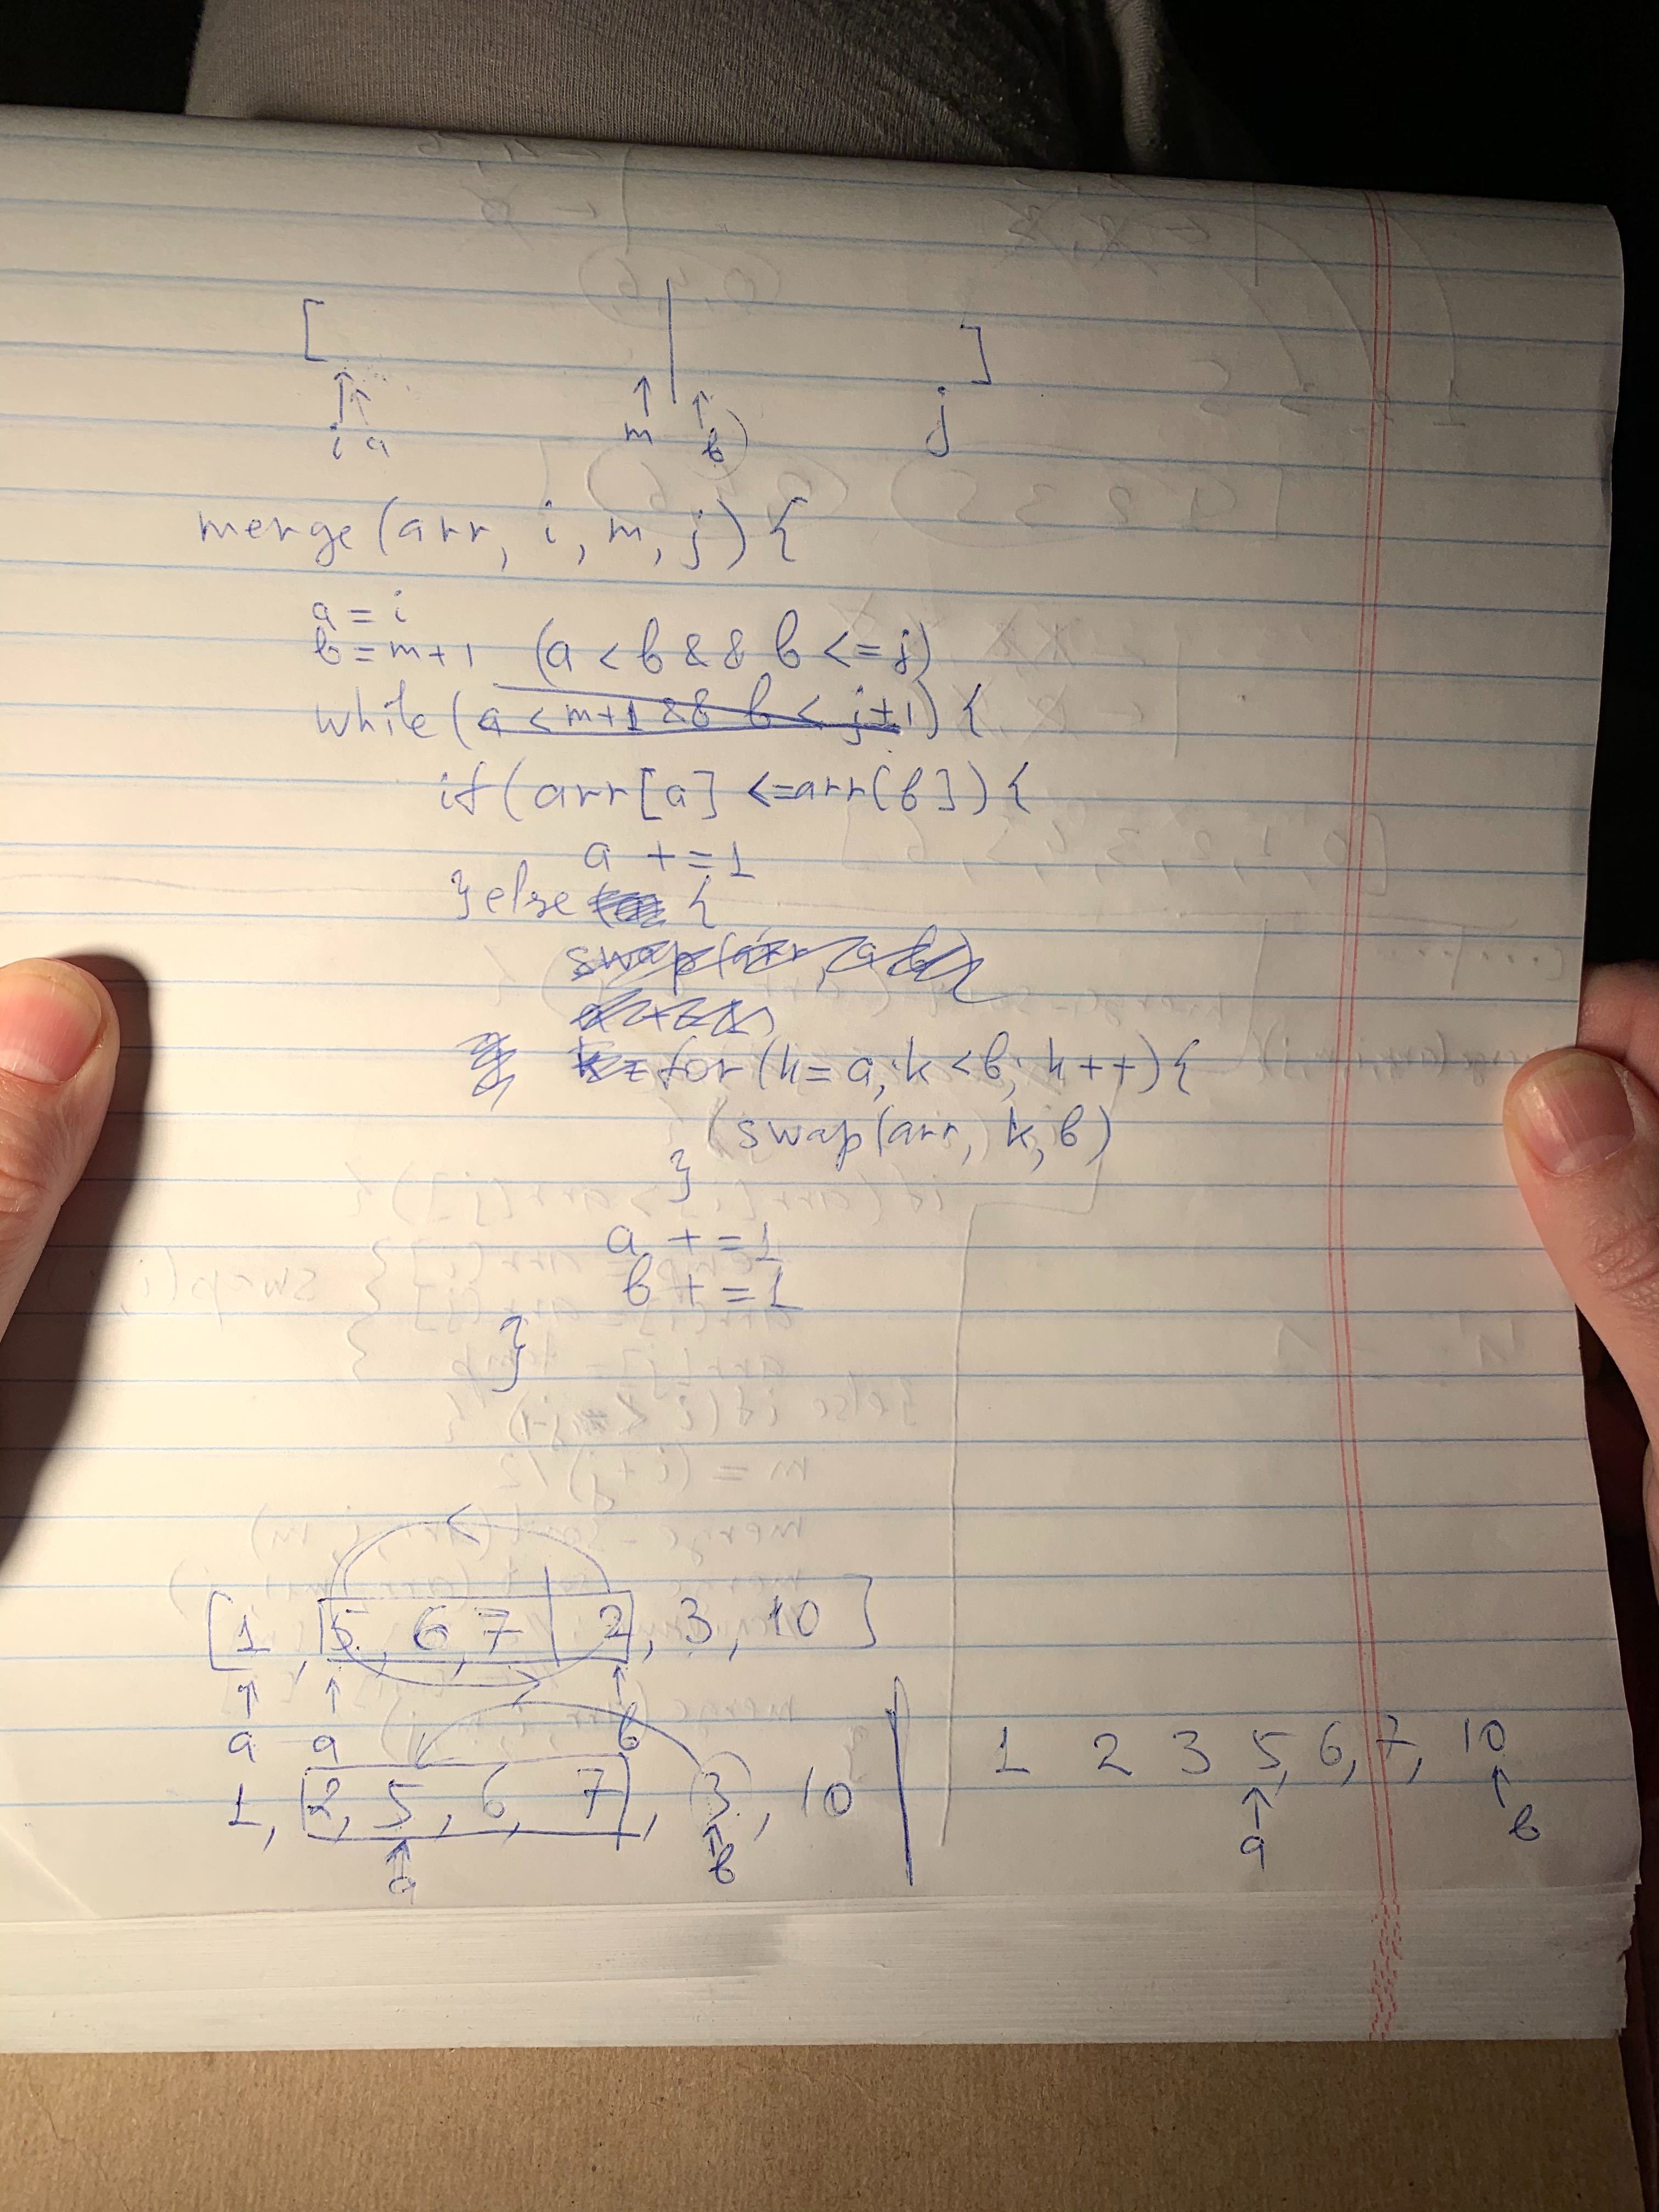 [ | ]
i a m b) j
merge (arr, i, m, j) {
a = i
b = m+1 (a < b && b <= j)
while (a < m+1 && b < j+1) {
if (arr[a] <= arr(b]) {
a += 1
} else {
swap (arr, a b)
for (k = a; k < b; k++) {
(swap (arr, k, b)
}
a += 1
b += 1
}
[1, 5, 6, 7 | 2, 3, 10]
a a b
1, 2, 5, 6, 7, 3, 10
a b
1 2 3 5, 6, 7, 10
a b